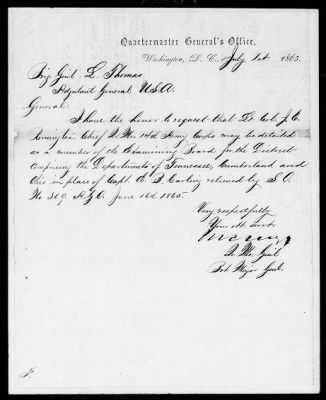 Quartermaster General's Office,
Washington, D. C., July 1st 1865.
Brig. Genl. L. Thomas
Adjutant General U.S.A.
General:
I have the honor to request that Lt. Col. J. C.
Chief Q.M. 14th Army Corps may be detailed
as a member of the Examining Board for the District
comprising the Departments of Tennessee, Cumberland and
Ohio in place of Capt. E. B. Carling relieved by S.O.
No 309 A.G.O. June 16th 1865.
Very respectfully
Your Obt. Servt.
Qr. Mr. Genl
Bvt Major Genl.